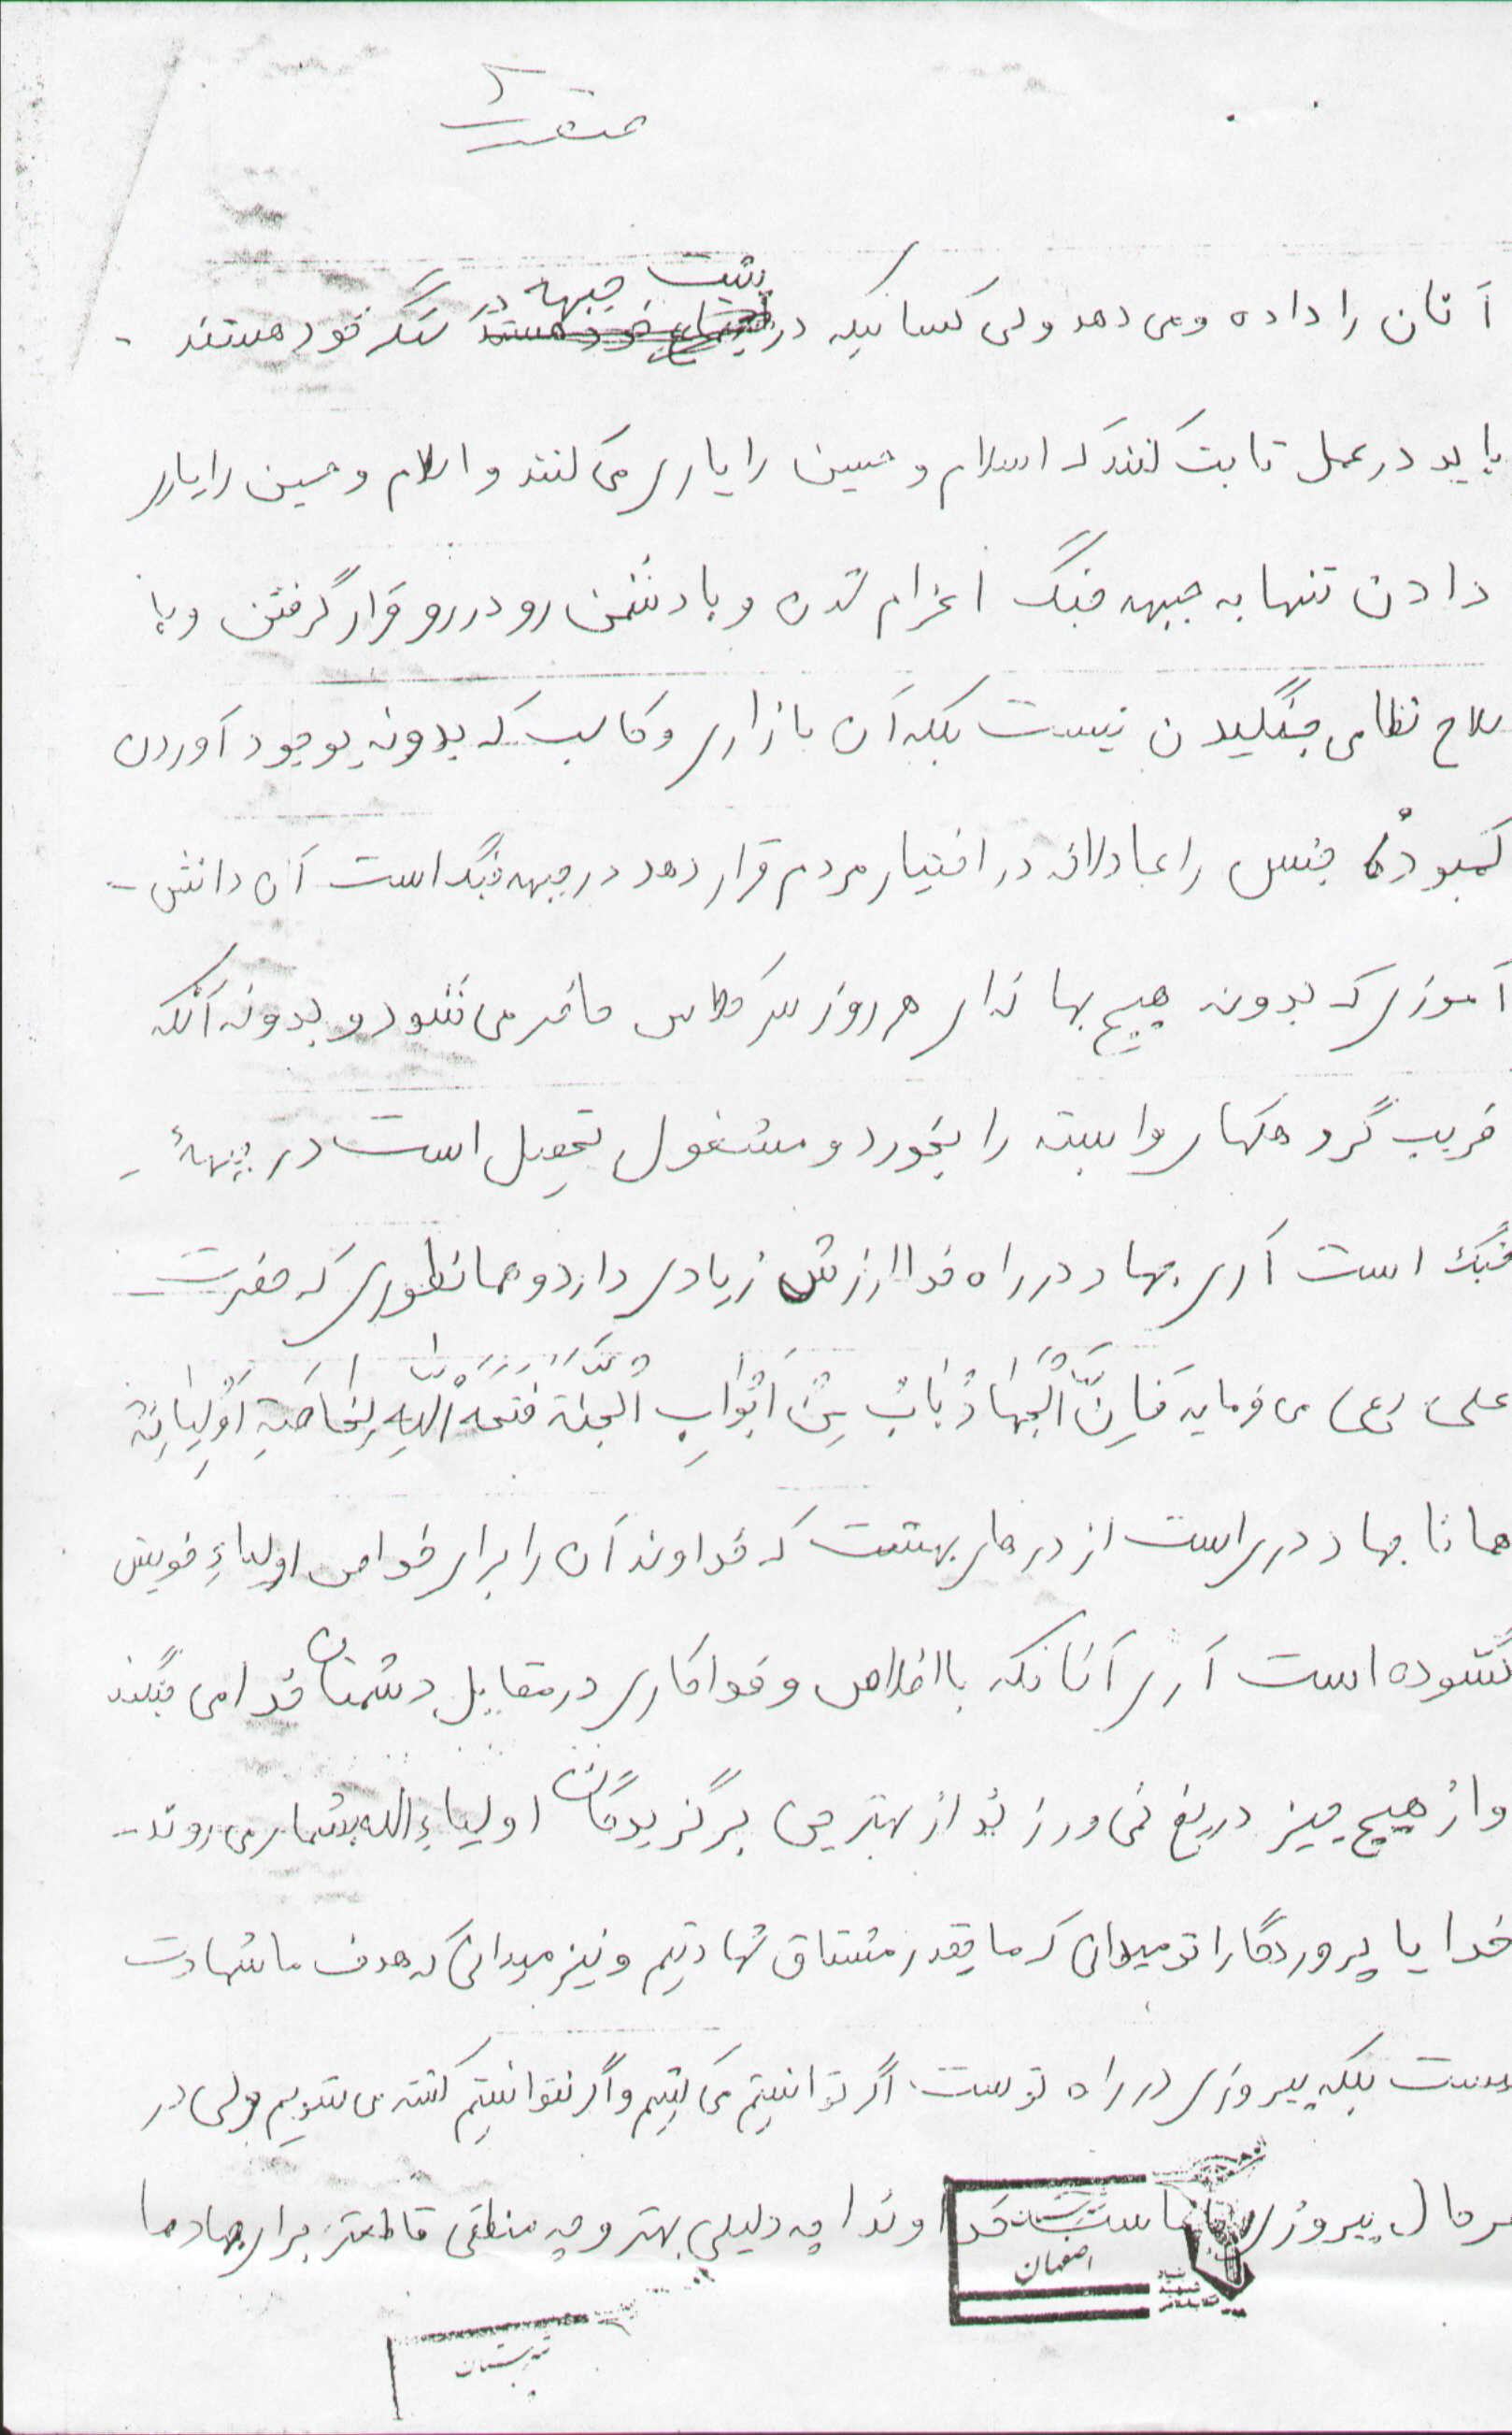 آنان را داده و می دهد ولی کسانیکه در پشت جبهه در سنگر خود هستند -
باید در عمل ثابت کنند که اسلام و حسین را یاری می کنند و اسلام و حسین را یاری
دادن تنها به جبهه جنگ اعزام شدن و با دشمن رو در رو قرار گرفتن و با
سلاح نظامی جنگیدن نیست بلکه آن بازاری و کاسب که بدونه بوجود آوردن
کمبود جنس را عادلانه در اختیار مردم قرار دهد در جبهه جنگ است آن دانش -
آموزی که بدونه هیچ بهانه ای هر روز سر کلاس حاضر می شود و بدونه آنکه
فریب گروهکهای وابسته را بخورد و مشغول تحصیل است در جبههٔ -
جنگ است آری جهاد در راه خدا ارزش زیادی دارد و همانطوری که حضرت
علی (ع) می فرماید فَاِنَّ الْجَهادُ بابُ مِنْ اَبْوابِ الْجَنَّة فَتَحَهُ اللهِ لِخاصَةِ اَوْلِیائِه
همانا جهاد دری است از درهای بهشت که خداوند آن را برای خواص اولیاءِ خویش
گشوده است آری آنانکه با اخلاص و فداکاری در مقابل دشمنان خدا می جنگند
و از هیچ چیز دریغ نمی ورزند از بهترین برگزیدگان اولیاءِ الله بشمار می روند -
خدایا پروردگارا تو میدانی که ما چقدر مشتاق شهادتیم و نیز میدانی که هدف ما شهادت
نیست بلکه پیروزی در راه توست. اگر توانستیم می کشیم و اگر نتوانستیم کشته می شویم ولی در
هر حال پیروزی با ماست خداوندا چه دلیلی بهتر و چه منطقی قاطعتر برای جهاد ما
اصفهان
بنیاد
شهید
انقلاب اسلامی